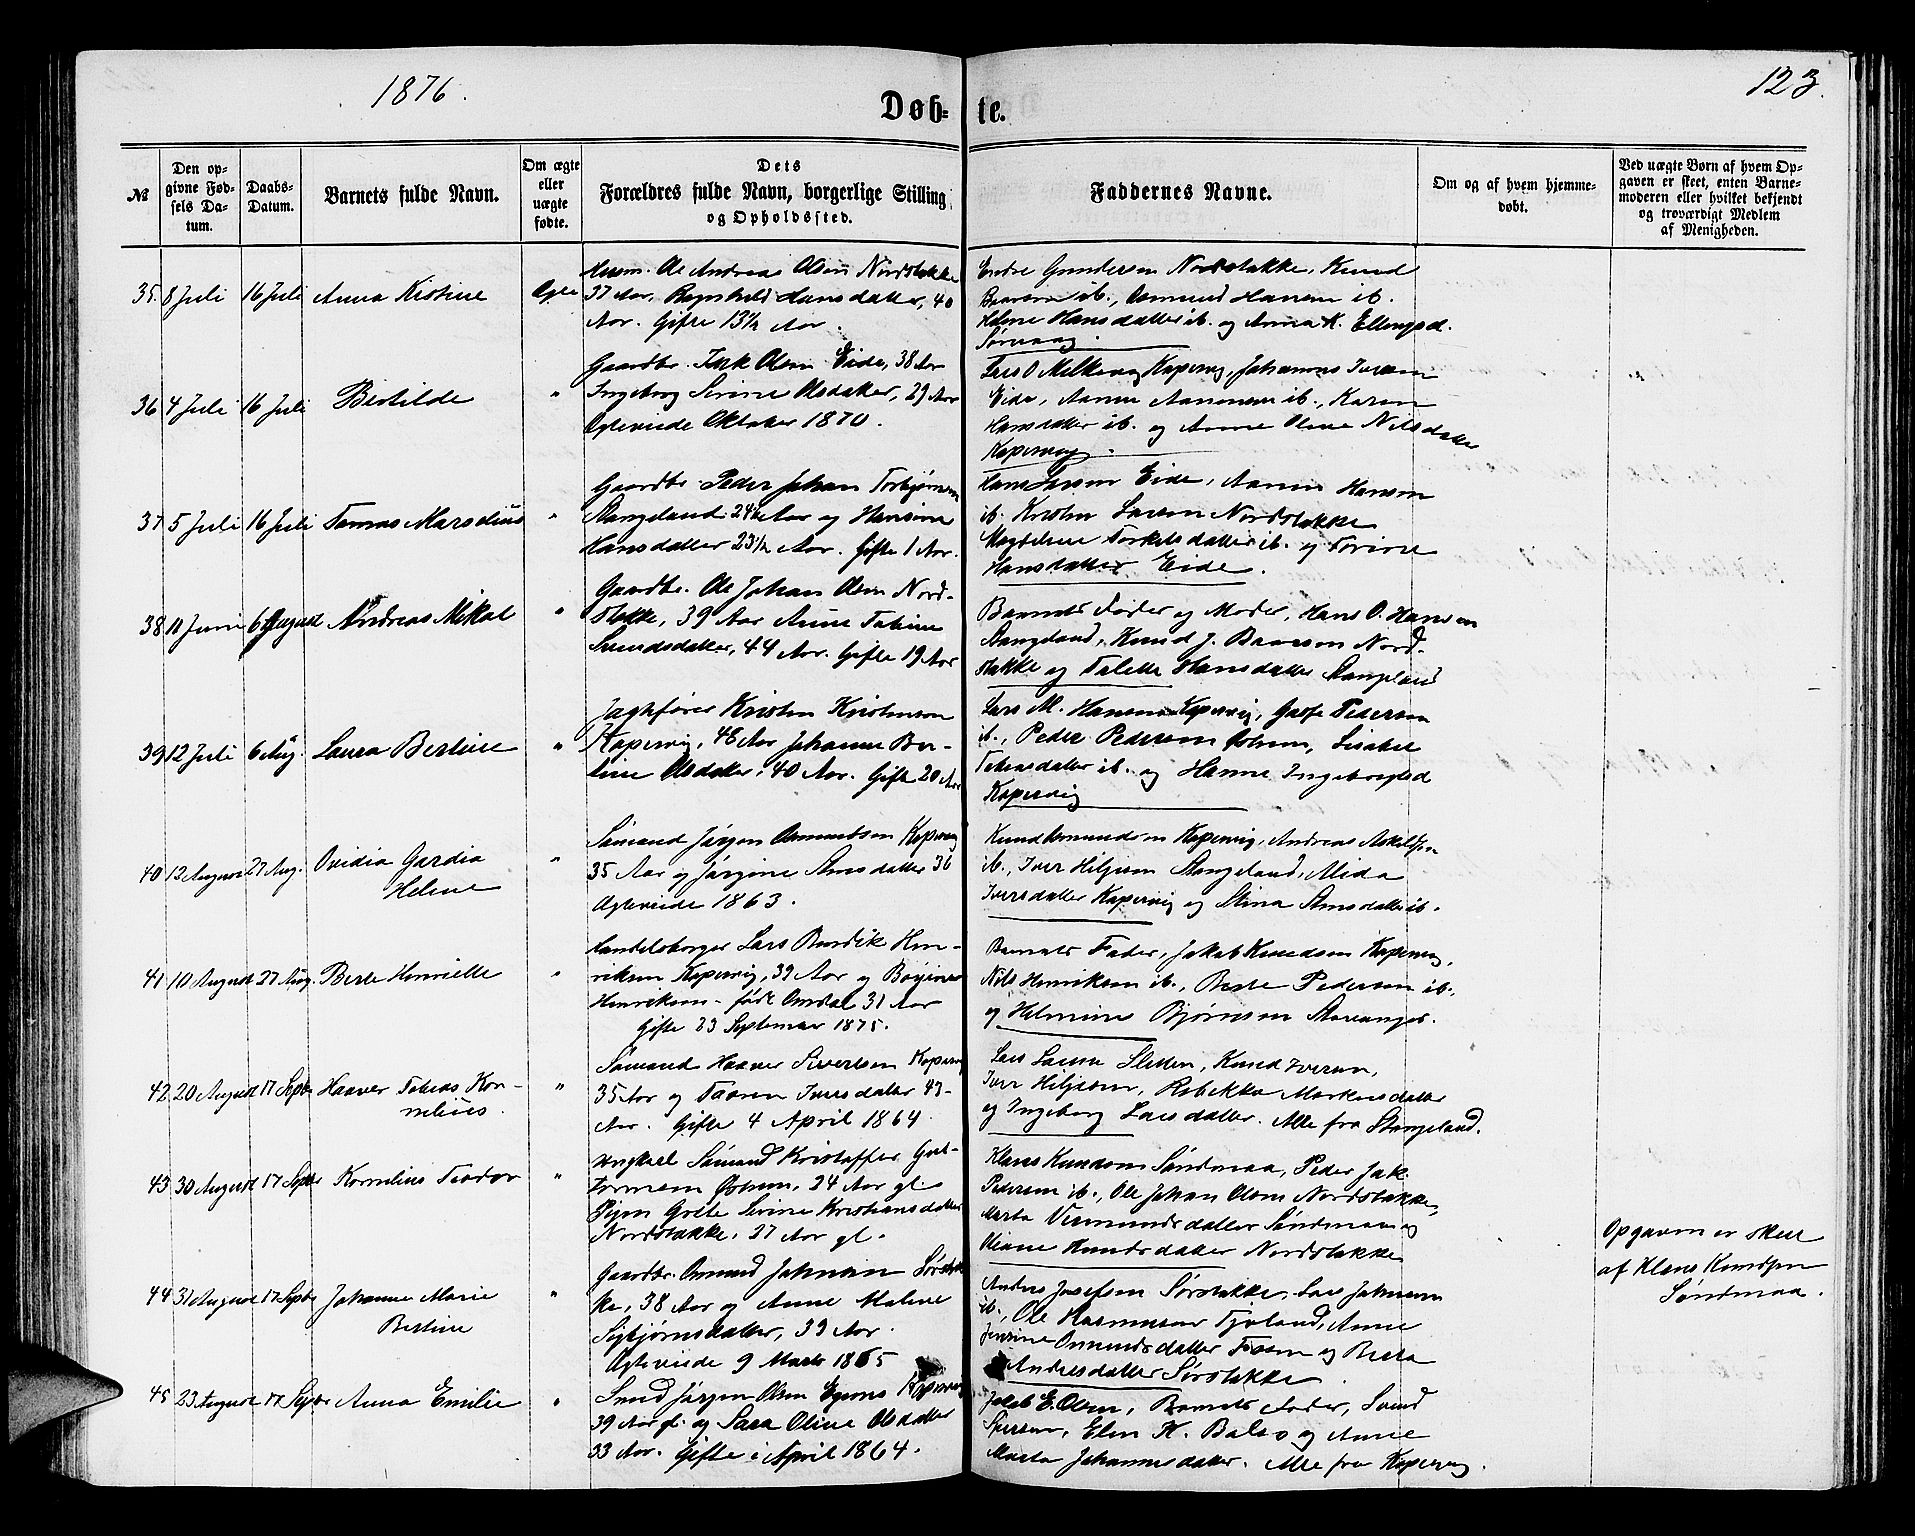 1876.
Døb=
te.
123.
№
Den op-
givne Fød-
sels Da-
tum.
Daabs-
Datum.
Barnets fulde Navn.
Om ægte
eller
uægte
fødte.
Dets
Forældres fulde Navn, borgerlige Stilling
og Opholdssted.
Faddernes Navne.
Om og af hvem hjemme-
døbt.
Ved uægte Børn af hvem Op-
gaven er skeet, enten Barne-
moderen eller hvilket bekjendt
og troværdigt Medlem
af Menigheden.
35. 8 Juli 16 Juli Anna Kistine Ægte
Husm. Ole Andreas Olsen Nordstokke
37 Aar, Hansdatter, 40
Aar. Gifte 13½ Aar.
Endre Gundersen Nordstokke, Knud
ib., Hansen ib.
Helene Hansdatter ib. og Anna K. Ellingsd.
36 4 Juli 16 Juli Bertilde "
Gaardbr. Olsen Eide, 38 Aar
Ingeborg Serine Olsdatter, 29 Aar
Ægteviede Oktober 1870.
Lars O Kopervig, Johannes Iversen
Eide, ib., Karen
Hansdatter ib. og Anne Oline Nilsdatter
Kopervig.
37 5 Juli 16 Juli Tomas Marselius "
Gaardbr. Peder Johan Torbjørnsen
Stangeland 24½ Aar og Hansine
Hansdatter 23½ Aar. Gifte 1 Aar.
Hans Larsen Eide, Hansen
ib. Larsen Nordstokke
Torkelsdatter ib. og Torine
Hansdatter Eide.
38 11 Juni 6 August Andreas Mikal "
Gaardbr. Ole Johan Olsen Nord-
stokke, 39 Aar Anne Tobine
Svendsdatter, 44 Aar. Gifte 19 Aar
Barnets Fader og Moder, Hans O. Hansen
Stangeland, Knud J. Nord-
stokke og Hansdatter Stangeland
39 12 Juli 6 Aug. Laura Bertine "
Jagtfører Kristen Kristensen
Kopervig, 48 Aar Johanne Ber-
tine Olsdatter, 40 Aar. Gifte 20 Aar
Lars M. Hansen Kopervig, Pedersen
ib., Peder Pedersen Lisabet
ib. og Hanne Ingeborgsd
Kopervig
40 12 August 27 Aug. Ovidia Gardia
Helene "
Sømand Jørgen Osmundsen Kopervig
35 Aar og Jørgine 36
Ægteviede 1863.
Knud Osmundsen Kopervig, Andreas
ib., Iver Stangeland,
Iversdatter Kopervig og Stina ib.
41 10 August 27 Aug. Berte Henriette "
Handelsborger Lars Hen-
riksen Kopervig, 39 Aar og
Henriksen født Omdal 31 Aar
Gifte 23 September 1875.
Barnets Fader, Jakob Knudsen Kopervig,
Nils Henriksen ib., Berte Pedersen ib.,
og Bjørnsen Stavanger.
42 20 August 17 Septbr Haaver Tobias Kor-
nelius. "
Sømand Haaver Sivertsen Kopervig
35 Aar og Iversdatter 43
Aar. Gifte 4 April 1864
Lars Larsen Knud Iversen,
Iver Rebekka Markusdatter
og Ingeborg Larsdatter. Alle fra Stangeland.
43 30 August 17 Septbr Kornelius Teodor "
Ungkarl Sømand Kristoffer
24 Aar gl.
Pigen Serine Kristiansdatter
Nordstokke, 27 Aar gl.
Klaus Knudsen Søndmaa, Peder Jak.
Pedersen ib., Ole Johan Olsen Nordstokke,
Marta Vermundsdatter Søndmaa og
Knudsdatter Nordstokke
Opgaven er skeet
af Klaus Knudsen
Søndmaa.
44 31 August 17 Septbr Johanne Marie
Bertine "
Gaardbr. Osmund Johnsen Sørstok-
ke, 38 Aar og Anne Malene
Sigbjørnsdatter, 39 Aar.
Ægteviede 9 Marts 1865
Anders Josefsen Sørstokke, Lars Johnsen
ib., Ole Rasmussen Anne
Osmundsdatter og Berta
Andersdatter Sørstokke.
45 23 August 17 Septbr Anna Emilie "
Smed Jørgen Olsen Kopervig
39 Aar gl. og Sara Oline Olsdatter
33 Aar. Gifte i April 1864.
Jakob E. Olsen, Barnets Fader, Svend
Elen K. og Anne
Marta Johannesdatter. Alle fra Kopervig.